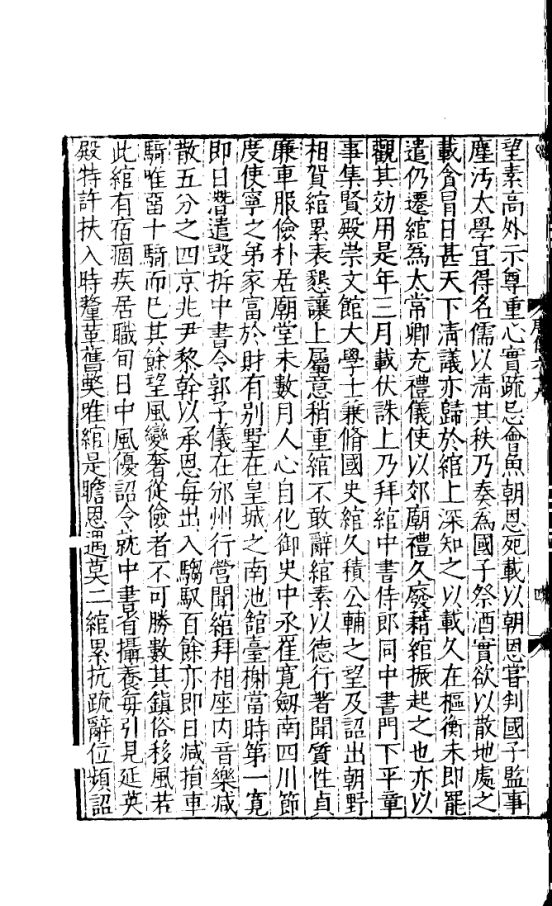 望素高外示尊重心實疏忌會魚朝恩死載以朝恩甞判國子監事
塵汚太學宜得名儒以清其秩乃奏爲國子祭酒實欲以散地處之
載貪冒日甚天下清議亦歸於綰上深知之以載久在樞衡未即罷
遣仍遷綰爲太常卿充禮儀使以郊廟禮久廢藉綰振起之也亦以
觀其効用是年三月載伏誅上乃拜綰中書侍郎同中書門下平章
事集賢殿崇文館大學士兼脩國史綰久積公輔之望及詔出朝野
相賀綰累表懇讓上屬意稍重綰不敢辭綰素以德行著聞質性貞
廉車服儉朴居廟堂未數月人心自化御史中丞崔寬劔南四川節
度使寧之弟家富於財有别墅在皇城之南池館臺榭當時第一寬
即日潛遣毀拆中書令郭子儀在邠州行營聞綰拜相座内音樂减
散五分之四京兆尹黎幹以承恩每出入騶馭百餘亦即日减損車
騎唯畱十騎而已其餘望風變奢從儉者不可勝數其鎮俗移風若
此綰有宿痼疾居職旬日中風優詔令就中書省攝養每引見延英
殿特許扶入時釐革舊獘唯綰是瞻恩遇莫二綰累抗疏辭位頻詔